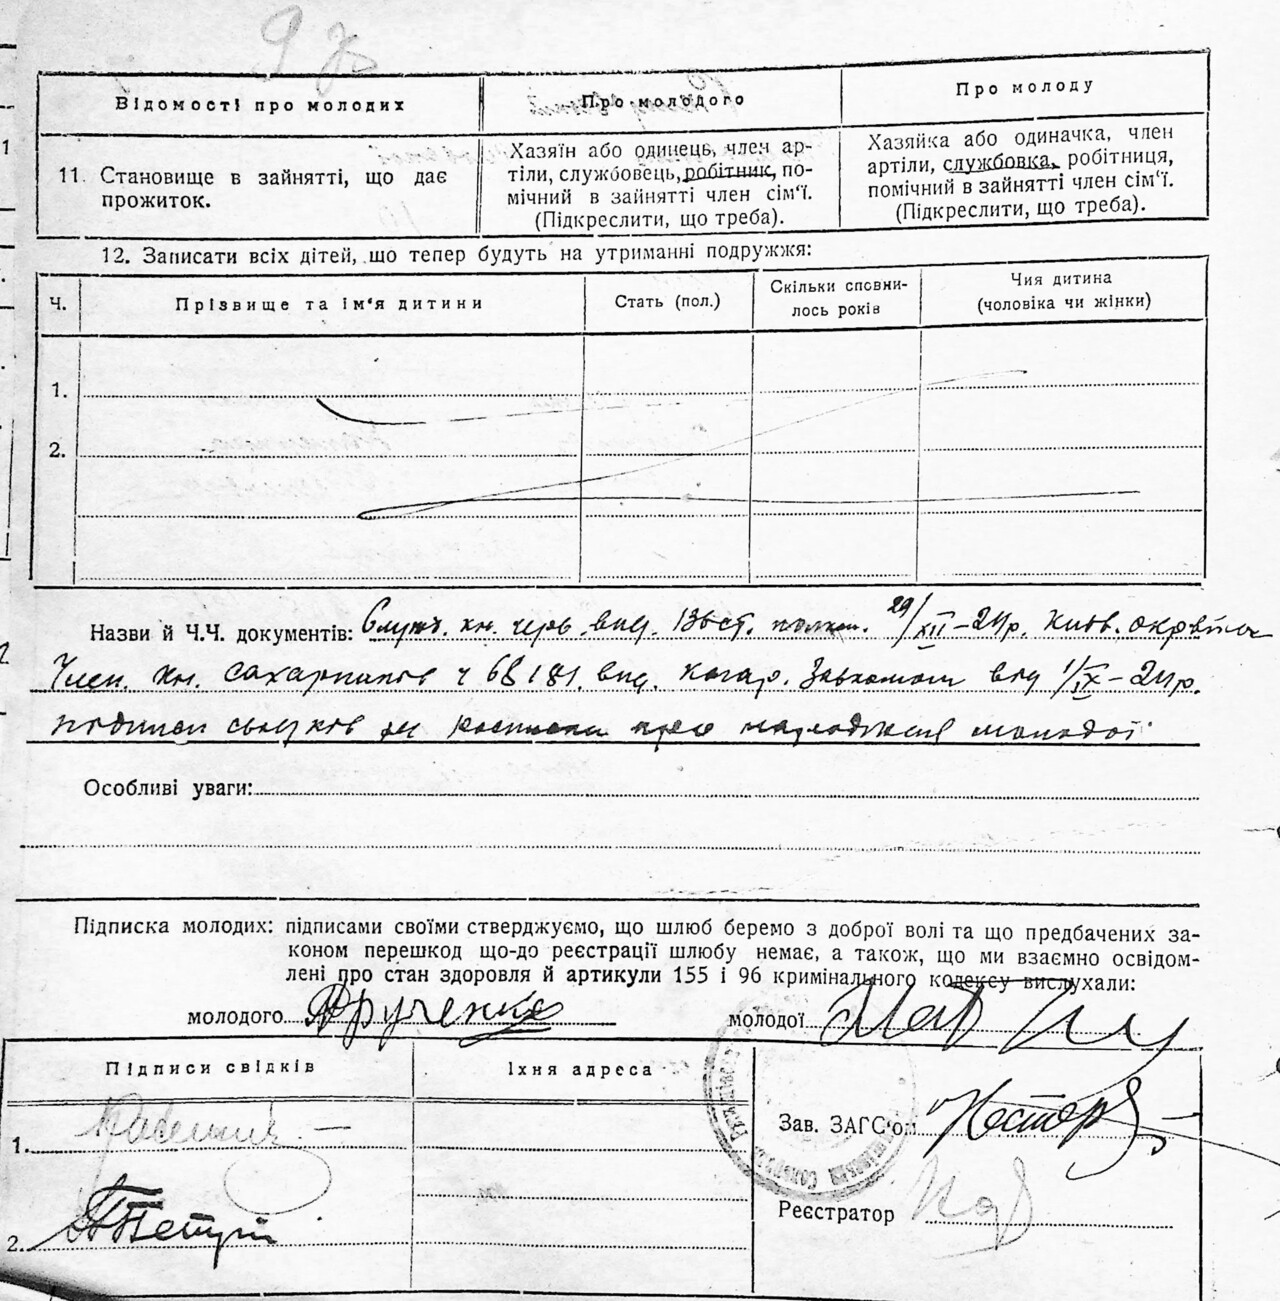 Відомості про молодих
Про молодого
Про молоду
11. Становище в зайнятті, що дає прожиток.
Хазяїн або одинець, член ар-
тіли, службовець, робітник, по-
мічний в зайнятті член сім'ї.
(Підкреслити, що треба).
Хазяйка або одиначка, член
артіли, службовка, робітниця,
помічний в зайнятті член сім'ї.
(Підкреслити, що треба).
12. Записати всіх дітей, що тепер будуть на утриманні подружжя:
Ч.
Прізвище та ім'я дитини
Стать (пол.)
Скільки сповни-
лось років
Чия дитина
(чоловіка чи жінки)
1.
2.
Назви й Ч.Ч. документів: Служб. кн. черв. вид. 136 ст. полком. 29/XII-24р. Київ.
Член. кн. сахарників ч 68181. вид. Завкомом від 1/IX-24р.
підписи свідків про народження молодої
Особливі уваги:
Підписка молодих: підписами своїми стверджуємо, що шлюб беремо з доброї волі та що предбачених за-
коном перешкод що-до реєстрації шлюбу немає, а також, що ми взаємно освідом-
лені про стан здоровля й артикули 155 і 96 кримінального кодексу вислухали:
молодого
молодої
Підписи свідків
Їхня адреса
1.
2.
Зав. ЗАГС'ом
Реєстратор